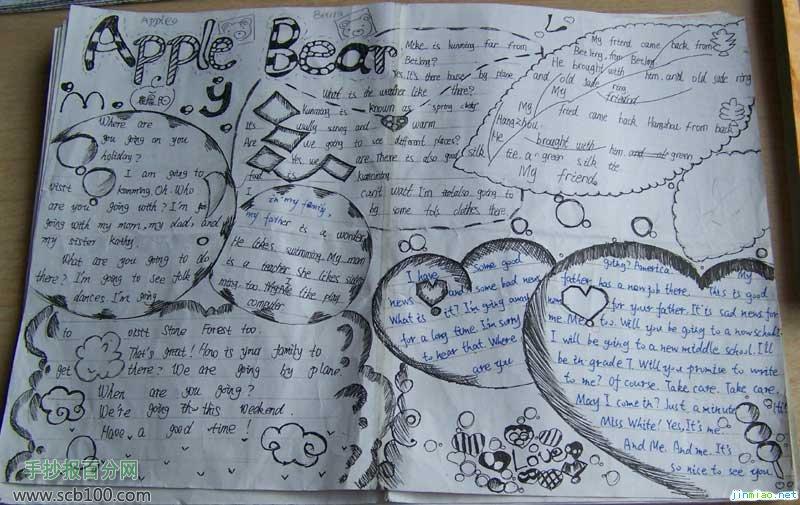 Apple
Bear
Apple
Bear
y
Where are
you going on you
holiday?
I am going to
visit kunming. Oh. Who
are you going with? I'm
going with my mom, my dad, and
my sister Kathy.
What are you going to do
there? I'm going to see folk
dances. I'm going
in my family,
my father is a wonder
He likes swimming. My mom
is a teacher She likes
ming too. like play
computer
to visit Stone Forest too.
That's great! How is your family to
get there? We are going by plane.
When are you going?
We're going this weekend.
Have a good time!
Mike is kunming far from
BeiJong?
Yes. It's there hours by plane
What is the weather like there?
kunming is known as spring
It's sunny and warm
Are we going to see different places?
Yes, we are. There is also good
food is kunming
I can't wait I'm going to
some clothes there
My friend came back from
BeiJong from BeiJong.
He brought him and old side ring
and old side ring
My friend
My fried came back Hangzhou from back
Hangzhou.
He brought with him and green silk
tie. a green silk tie
My friend.
I have some good
news and some bad news
What is it? I'm going away
for a long time. I'm sorry
to hear that. Where
are you
going? America. My
father has a new job there. This is good
new for your father. It's sad news for
me. Me too. Will you be going to a new school.
I will be going to a new middle school. I'll
be in grade 7. Will you promise to write
to me? Of course. Take care. Take care.
May I come in? Just a minute
Miss White! Yes, It's me
And Me. And me. It's
so nice to see you
Love
手抄报百分网
www.scb100.com
jinmiao.net